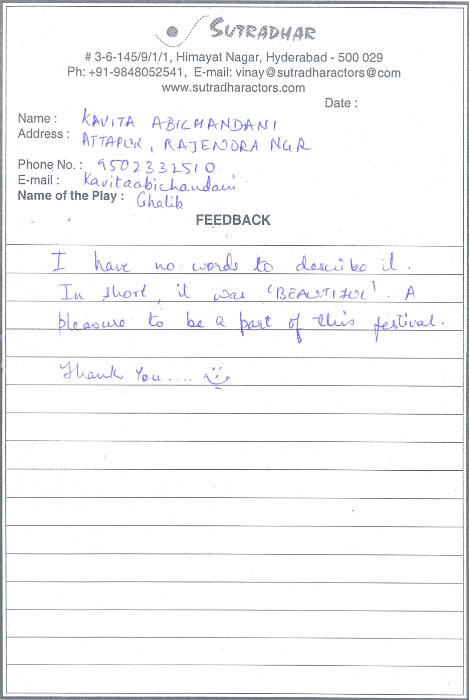 SUTRADHAR
# 3-6-145/9/1/1, Himayat Nagar, Hyderabad - 500 029
Ph: +91-9848052541, E-mail: vinay@sutradharactors@com
www.sutradharactors.com
Date :
Name : KAVITA ABICHANDANI
Address : ATTAPUR, RAJENDRA NGR
Phone No. : 9502332510
E-mail : Kavitaabichandani
Name of the Play : Ghalib
FEEDBACK
I have no words to describe it.
In short, it was 'BEAUTIFUL'. A
pleasure to be a part of this festival.
Thank You....